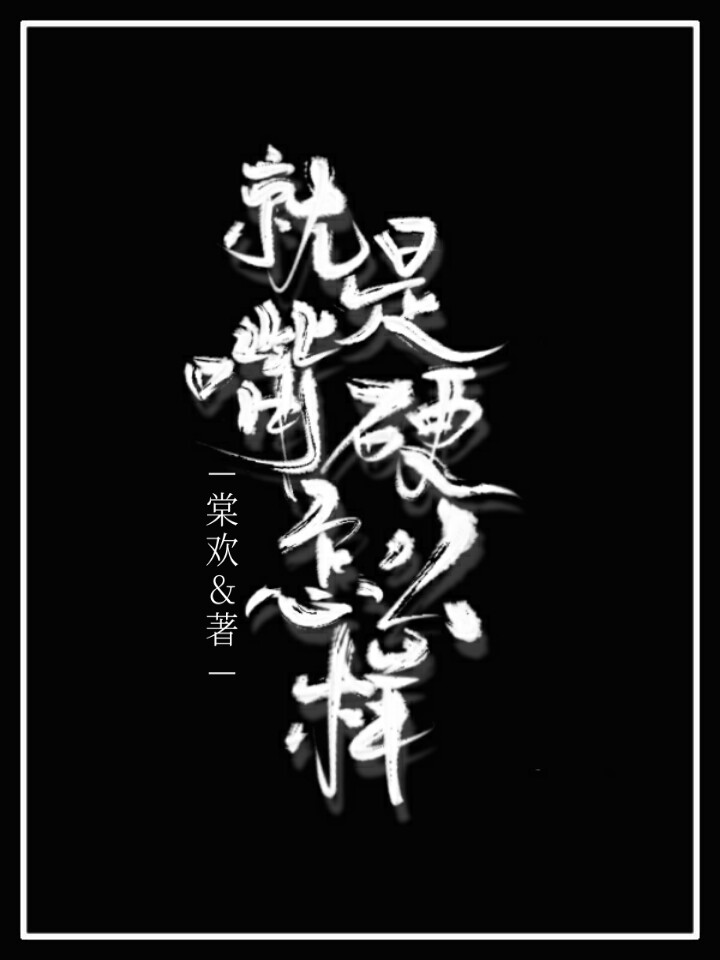 就是嘴硬怎么样
棠欢&著